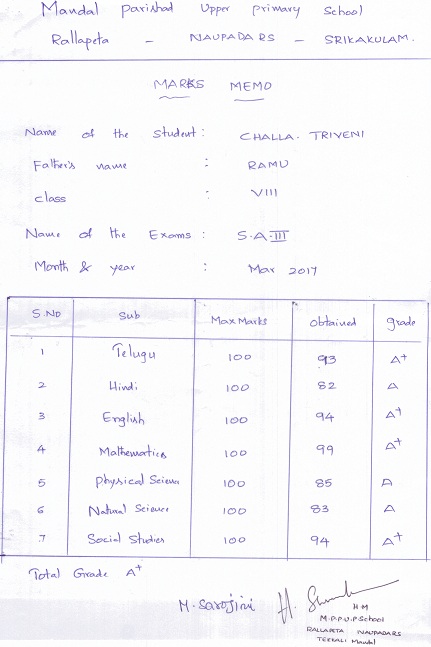 Mandal parishad Upper primary School
Rallapeta - NAUPADA RS - SRIKAKULAM.
MARKS MEMO
Name of the student : CHALLA. TRIVENI
Father's name : RAMU
class : VIII
Name of the Exams : S.A.III
Month & year : Mar 2017
S.NO Sub Max Marks obtained grade
1 Telugu 100 93 A+
2 Hindi 100 82 A
3 English 100 94 A+
4 Mathematics 100 99 A+
5 Physical Science 100 85 A
6 Natural Science 100 83 A
7 Social Studies 100 94 A+
Total Grade A+
M. Sarojini
HM
M.P.P.U.P School
RALLAPETA NAUPADARS
TEKKALI Mandal